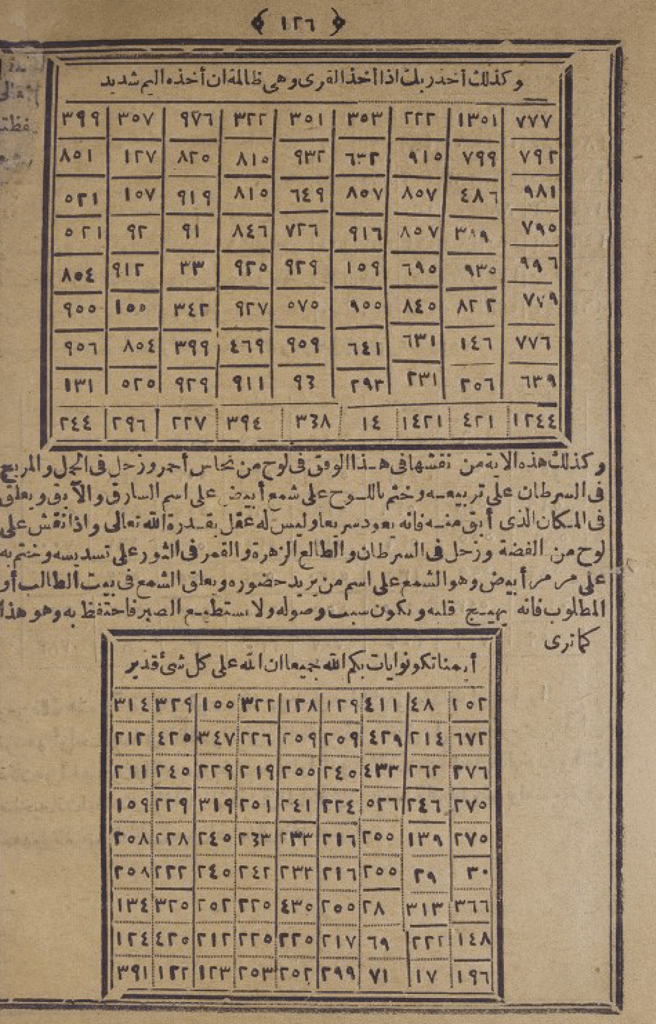 ﴿ ١٢٦ ﴾
وكذلك أخذ ربك اذا أخذ القرى وهى ظالمة ان أخذه اليم شديد
٣٩٩ ٣٥٧ ٩٧٦ ٣٢٢ ٣٥١ ٣٥٣ ٢٢٢ ١٣٥١ ٧٧٧
٨٥١ ١٢٧ ٨٢٥ ٨١٥ ٩٣٢ ٦٣٢ ٩١٥ ٧٩٩ ٧٩٢
٥٢١ ١٥٧ ٩١٩ ٨١٥ ٦٤٩ ٨٥٧ ٨٥٧ ٤٨٦ ٩٨١
٥٢١ ٩٢ ٩١ ٨٤٦ ٧٢٦ ٩١٦ ٨٥٧ ٣٨٩ ٧٩٥
٨٥٤ ٩١٢ ٣٣ ٩٢٥ ٩٢٩ ١٥٩ ٦٩٥ ٩٣٥ ٩٩٦
٩٥٥ ١٥٥ ٣٤٢ ٩٢٧ ٥٧٥ ٩٥٥ ٨٤٥ ٨٢٢ ٧٧٩
٩٥٦ ٨٥٤ ٣٩٩ ٤٦٩ ٩٥٩ ٦٤١ ٦٣١ ١٤٦ ٧٧٦
١٣١ ٥٢٥ ٩٢٩ ٩١١ ٩٣ ٢٩٣ ٢٣١ ٢٥٦ ٦٣٩
٢٤٤ ٢٩٦ ٢٢٧ ٣٩٤ ٣٣٨ ١٤ ١٤٢١ ٤٢١ ١٢٤٤
وكذلك هذه الآية من نقشها فى هذا الوفق فى لوح من نحاس أحمر وزحل فى الحمل والمريخ
فى السرطان على تربيعه وختم باللوح على شمع أبيض على اسم السارق والآبق ويعلق
فى المكان الذى أبق منه فانه يعود سريعا وليس له عقل بقدرة الله تعالى واذا نقش على
لوح من الفضة وزحل فى السرطان والطالع الزهرة والقمر فى الثور على تسديسه وختم به
على مرمر أبيض وهو الشمع على اسم من يريد حضوره ويعلق الشمع فى بيت الطالب أو
المطلوب فانه يهيج قلبه ويكون سبب وصوله ولا يستطيع الصبر فاحتفظ به وهو هذا
كما ترى
أينما تكونوا يات بكم الله جميعا ان الله على كل شئ قدير
٣١٤ ٣٢٩ ١٥٥ ٣٢٢ ١٢٨ ١٢٩ ٤١١ ٤٨ ١٥٢
٢١٢ ٤٢٥ ٣٤٧ ٢٢٦ ٢٥٩ ٢٥٩ ٤٢٩ ٢١٤ ٦٧٢
٢١١ ٢٤٥ ٢٢٩ ٢١٩ ٢٥٥ ٢٤٥ ٤٣٣ ٢٦٢ ٢٧٦
١٥٩ ٢٢٩ ٣١٩ ٢٥١ ٢٤١ ٢٢٤ ٥٢٦ ٢٤٦ ٢٧٥
٢٥٨ ٢٢٨ ٢٤٥ ٢٣٣ ٢٣٣ ٢١٦ ٢٥٥ ١٣٩ ٢٧٥
٢٥٨ ٢٢٢ ٢٤٥ ٢٤٢ ٢٣٢ ٢١٦ ٢٥٥ ٢٩ ٣٠
١٣٤ ٣٢٥ ٢٥٢ ٢٢٥ ٤٣٥ ٢٥٥ ٢٨ ٣١٣ ٣٦٦
١٢٤ ٤٢٥ ٢١٢ ٢٢٥ ٢٢٥ ٢١٧ ٦٩ ٢٢٢ ١٤٨
٣٩١ ١٢٢ ١٢٣ ٢٥٣ ٢٥٢ ٢٩٩ ٧١ ١٧ ١٩٦